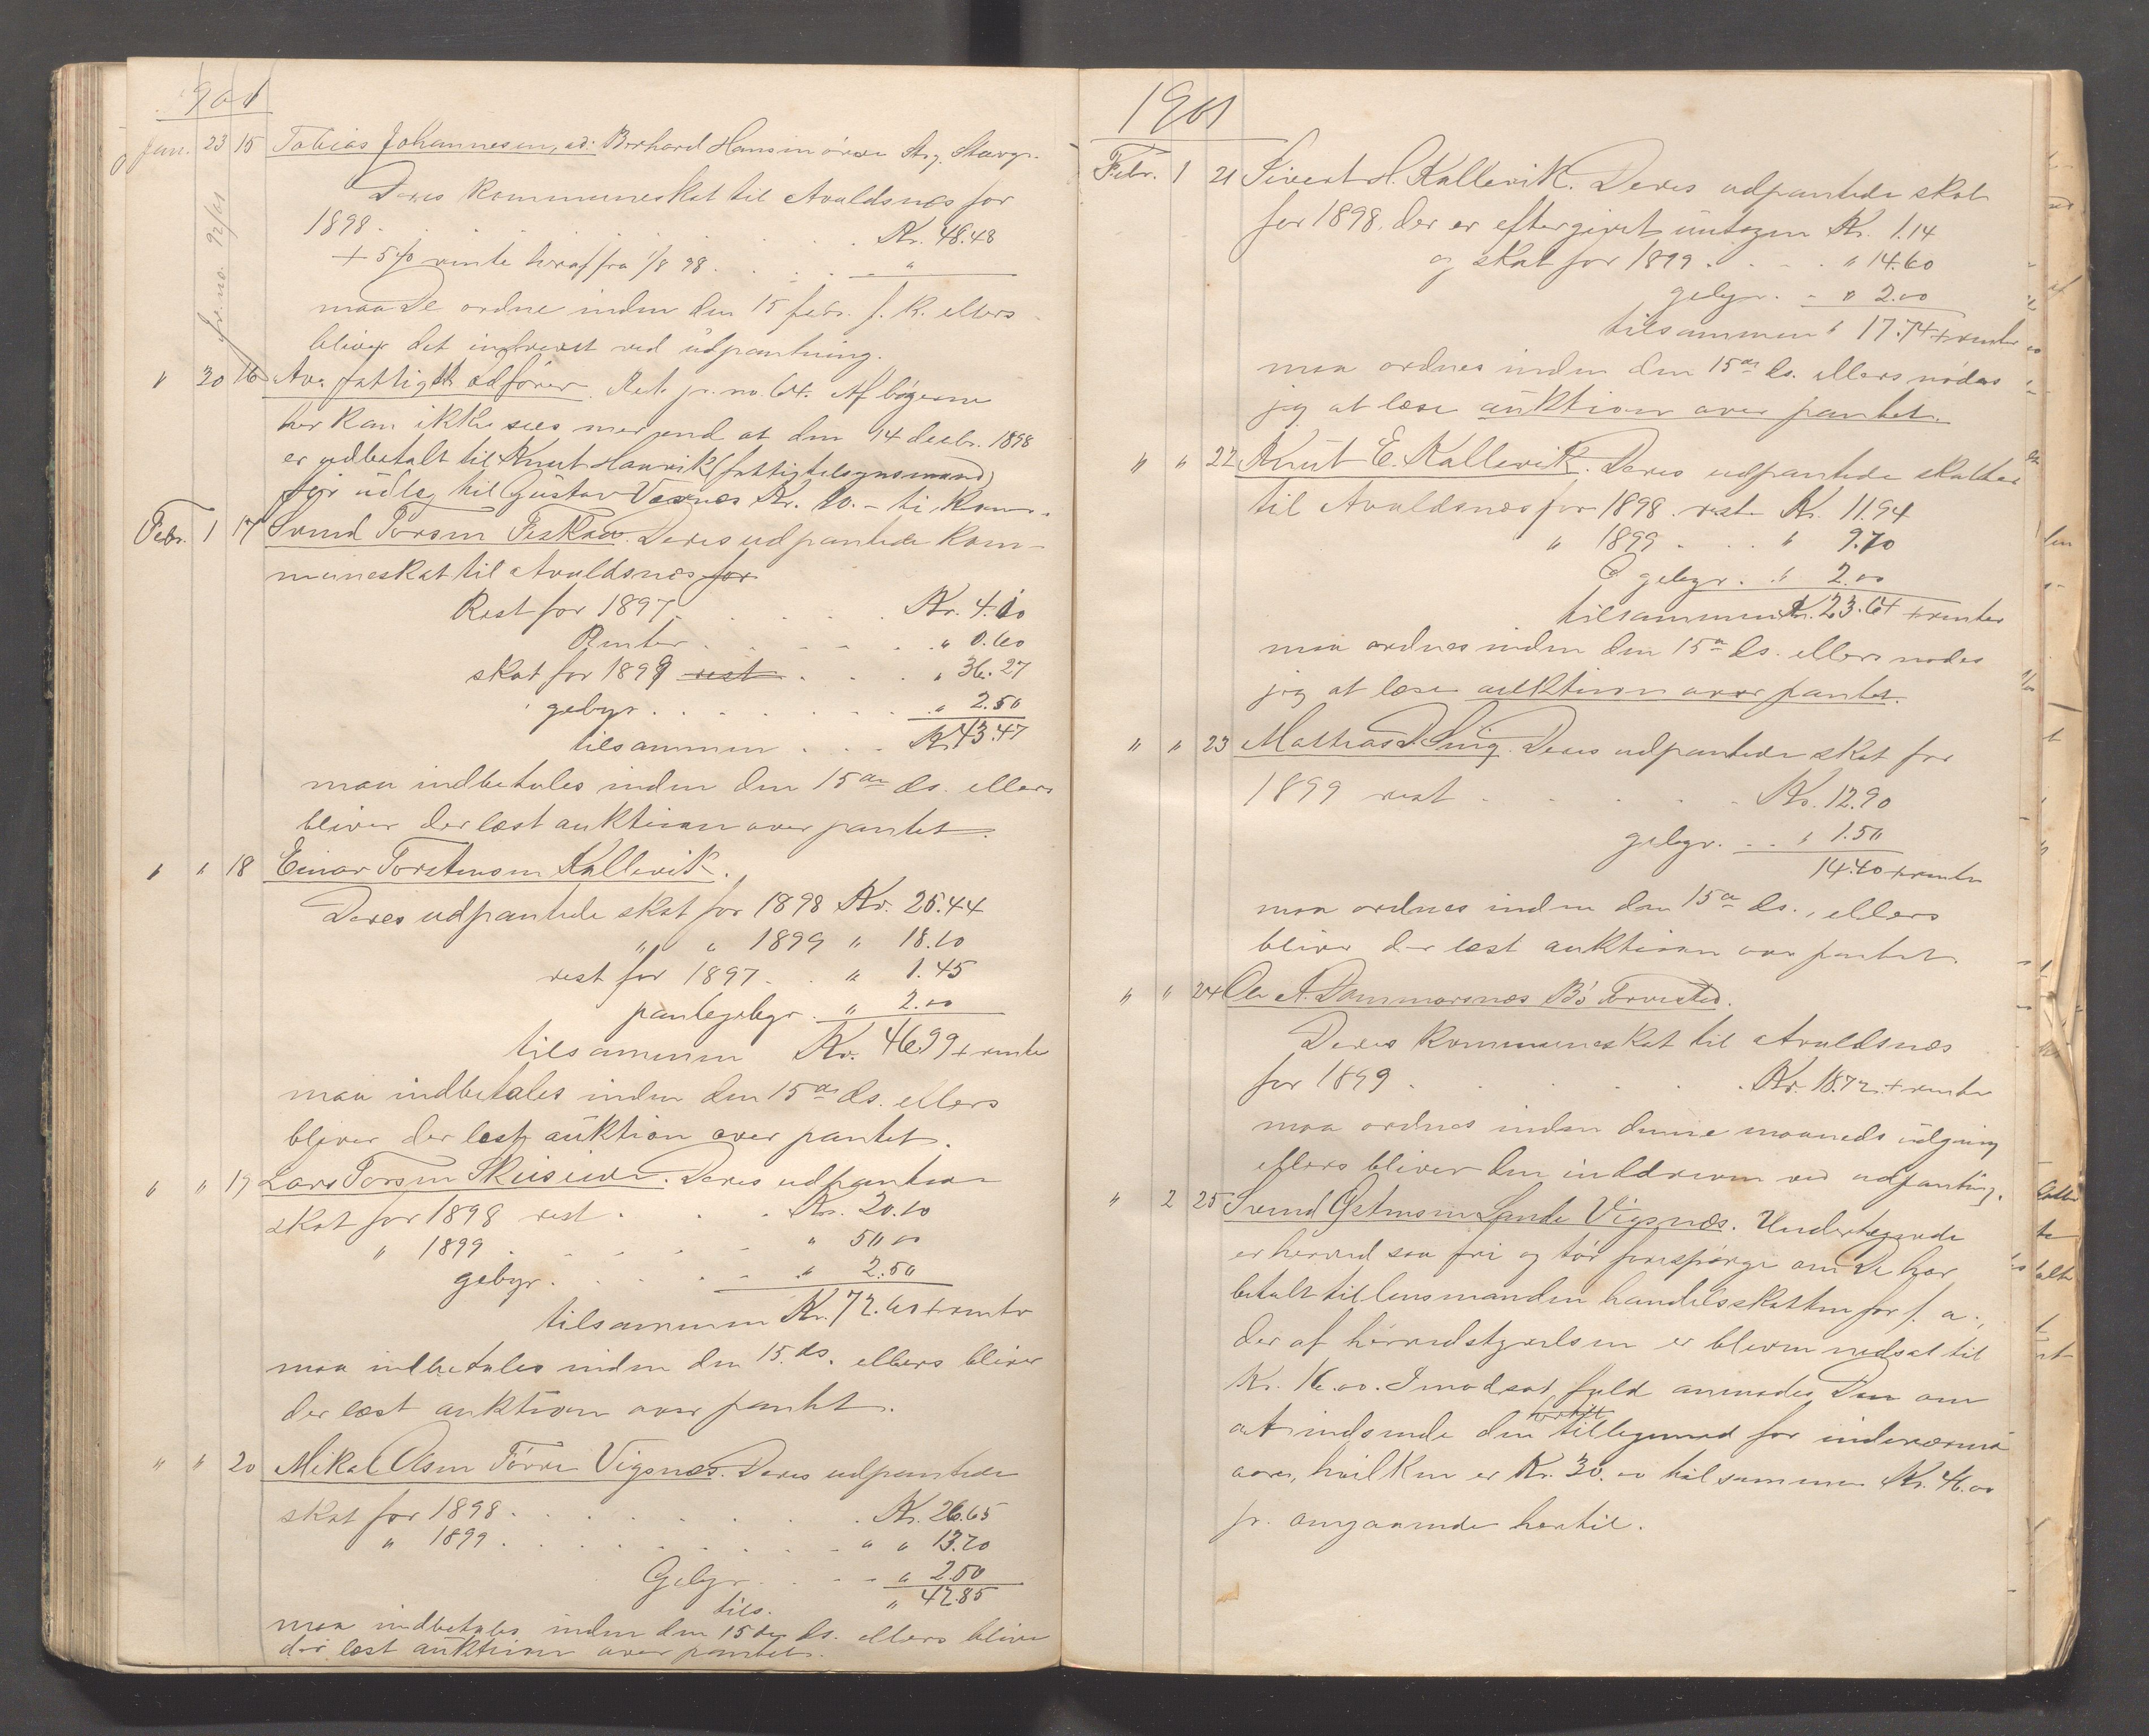 1901
Jan. 23 15 Tobias Johannesen, ad: Berhard Hansen Stavgr.
Deres kommuneskat til Avaldsnes for
1898 . . . . . . Kr. 48.48
+ 5 % rente heraf fra 1/8 98 . . . . "
maa De ordne inden den 15 febr. f. k. ellers
bliver det inddrevet ved udpantning.
Jr. no. 92/01
" 30 16 Av. fattigk ordfører. Ret. jr. no. 64. Af bøgerne
her kan ikke sees mer end at den 14 decbr. 1898
er udbetalt til Knut Hauvik (fattigtilsynsmand)
for udlæg til Gustav Vaernes Kr. 10. – ti kroner.
Febr. 1 17 Svend Torsen Feskaa. Deres udpantede kom-
muneskat til Avaldsnes for
Rest for 1897 . . . . Kr. 4.10
Renter . . . . . " 0.60
skat for 1899 rest . . . " 36.27
gebyr . . . . . . " 2.50
tilsammen . . . Kr. 43.47
maa indbetales inden den 15de ds. ellers
bliver der læst auktion over pantet.
" " 18 Einar Torstensen Kallevik.
Deres udpantede skat for 1898 Kr. 25.44
" " 1899 " 18.10
rest for 1897 . . " 1.45
pantegebyr . " 2.00
tilsammen Kr. 46.99 + rente
maa indbetales inden den 15de ds. ellers
bliver der læst auktion over pantet.
" " 19 Lars Torsen Deres udpantede
skat for 1898 rest . . . Kr. 20.10
" 1899 . . . . . " 50.00
gebyr . . . . . " 2.50
tilsammen Kr. 72.60 + renter
maa indbetales inden den 15. ds. ellers bliver
der læst auktion over pantet.
" " 20 Mikal Olsen Førre Vigsnes. Deres udpantede
skat for 1898 . . . . . . . Kr. 26.65
" 1899 . . . . . . . " " 13.70
Gebyr . . . . " 2.50
tils. " 42.85
maa indbetales inden den 15de ds. ellers bliver
der læst auktion over pantet.
1901
Febr. 1 21 Sivert H. Kallevik. Deres udpantede skat
for 1898, der er eftergivet untagen Kr. 1.14
og skat for 1899 . . . . " 14.60
gebyr. . " 2.00
tilsammen " 17.74 + renter
maa ordnes inden den 15de ds. ellers nødes
jeg at læse auktion over pantet.
" " 22 Knut E. Kallevik. Deres udpantede skatter
til Avaldsnes for 1898 rest Kr. 11.94
" 1899 . . . " 9.70
gebyr . " 2.00
tilsammen Kr. 23.64 + renter
maa ordnes inden den 15de ds. ellers nødes
jeg at læse auktion over pantet.
" " 23 Mathias D. Deres udpantede skat for
1899 rest . . . . . Kr. 12.90
gebyr. . . " 1.50
14.40 + renter
maa ordnes inden den 15de ds., ellers
bliver der læst auktion over pantet.
" " 24 Ole A. Dammarsnes Bø Torvested.
Deres kommuneskat til Avaldsnes
for 1899 . . . . . . . Kr. 18.72 + rente
maa ordnes inden denne maaneds udgang
ellers bliver den inddreven ved udpantning.
" 2 25 Svend Østensen Sande Vigsnes. Undertegnede
er herved saa fri og tør forespørge om De har
betalt til lensmanden handelsskatten for f. a.,
der af herredstyrelsen er bleven nedsat til
Kr. 16.00. I modsat fald anmodes Den om
at indsende den tilligemed for inderværende
aar, hvilken er Kr. 30.00 tilsammen Kr. 46.00
pr. omgaaende hertil.